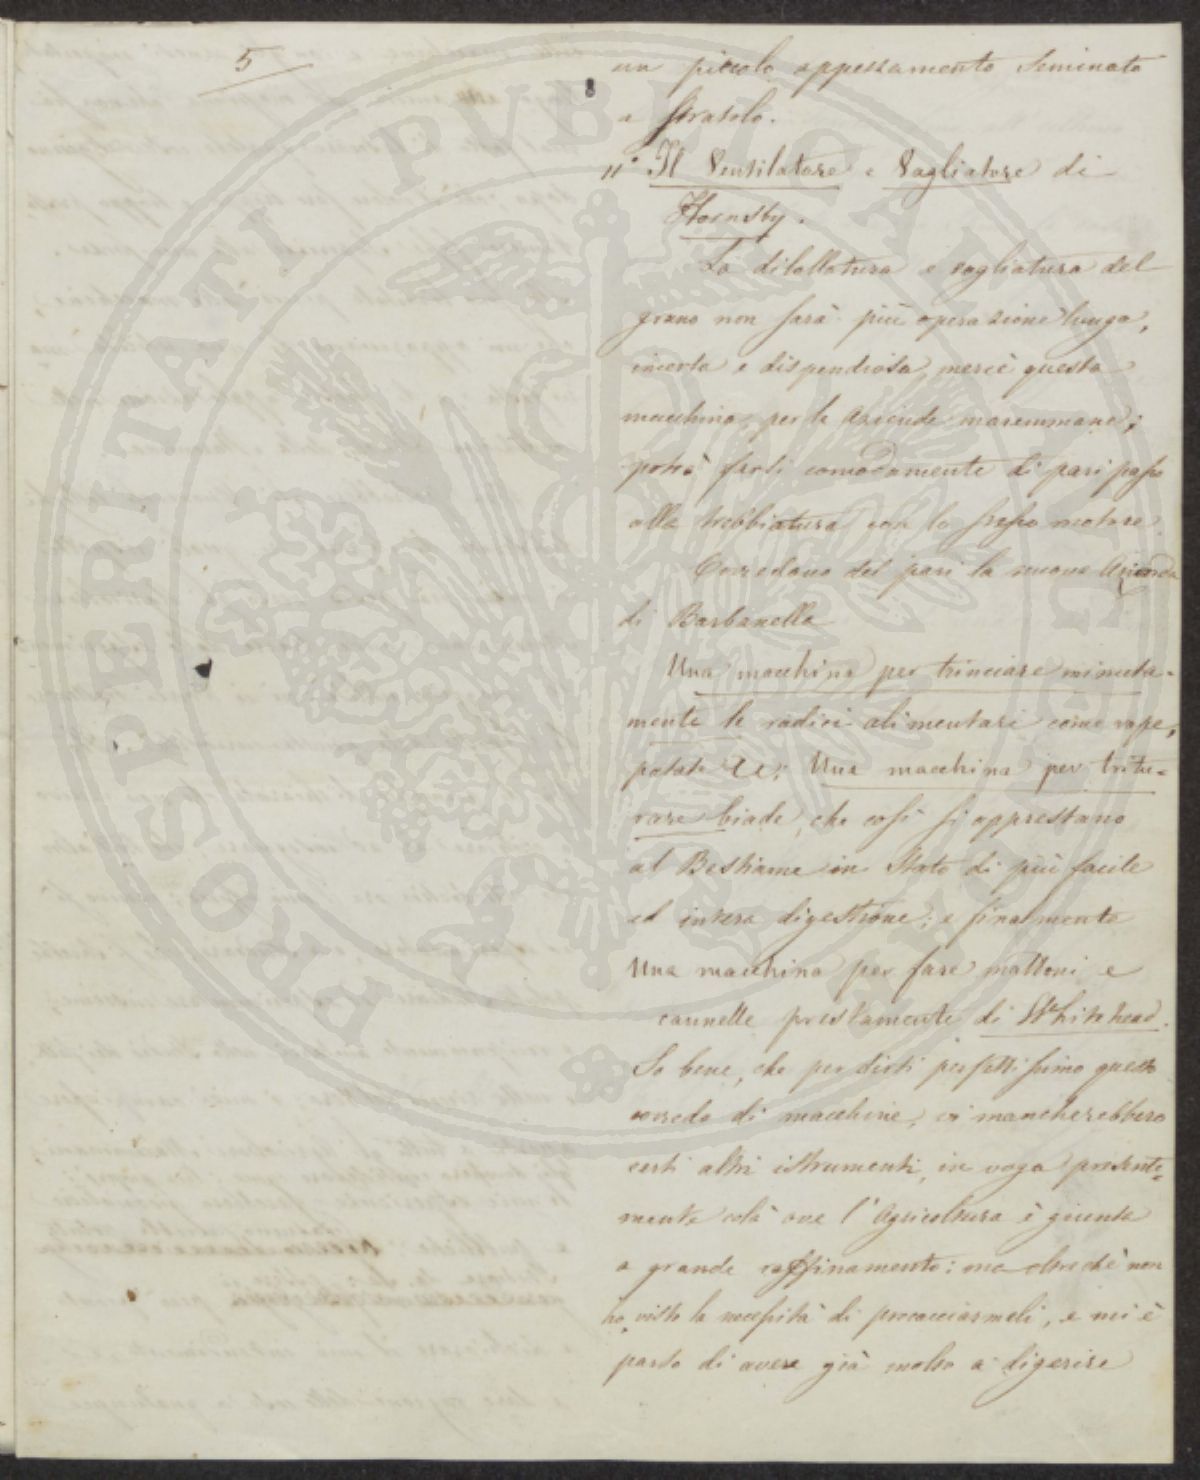 5
un piccolo appezzamento seminato
a strasolo.
11° Il Ventilatore e Vagliatore di
Hornsby.
La dilollatura e vagliatura del
grano non sarà più operazione lunga,
incerta e dispendiosa, mercè questa
macchina, per le Aziende maremmane;
potrà farsi comodamente di pari passo
alla trebbiatura con lo stesso motore.
Corredano del pari la nuova Azienda
di Barbanella
Una macchina per trinciare minuta=
mente le radici alimentari come rape,
patate &c; Una macchina per tritu=
rare biade, che così si apprestano
al Bestiame in stato di più facile
ed intera digestione; e finalmente
Una macchina per fare mattoni e
cannelle prestamente di Whitehead.
So bene, che per dirsi perfettissimo questo
corredo di macchine, ci mancherebbero
certi altri istrumenti, in voga presente=
mente colà ove l'Agricoltura è giunta
a grande raffinamento: ma oltre che non
ho visto la necessità di procacciarmeli, e mi è
parso di avere già molto a digerire
PROSPERITATI PVBLICAE AVGENDAE